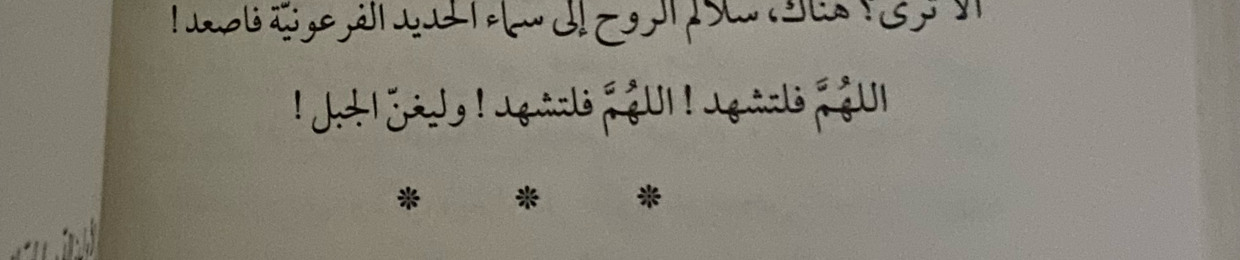 ألا ترى؟ هناك، سلالم الروح إلى سماء الحديد الفرعونيّة فاصعد!
اللهُمَّ فلتشهد! اللهُمَّ فلتشهد! وليغنّ الجبل!
* * *